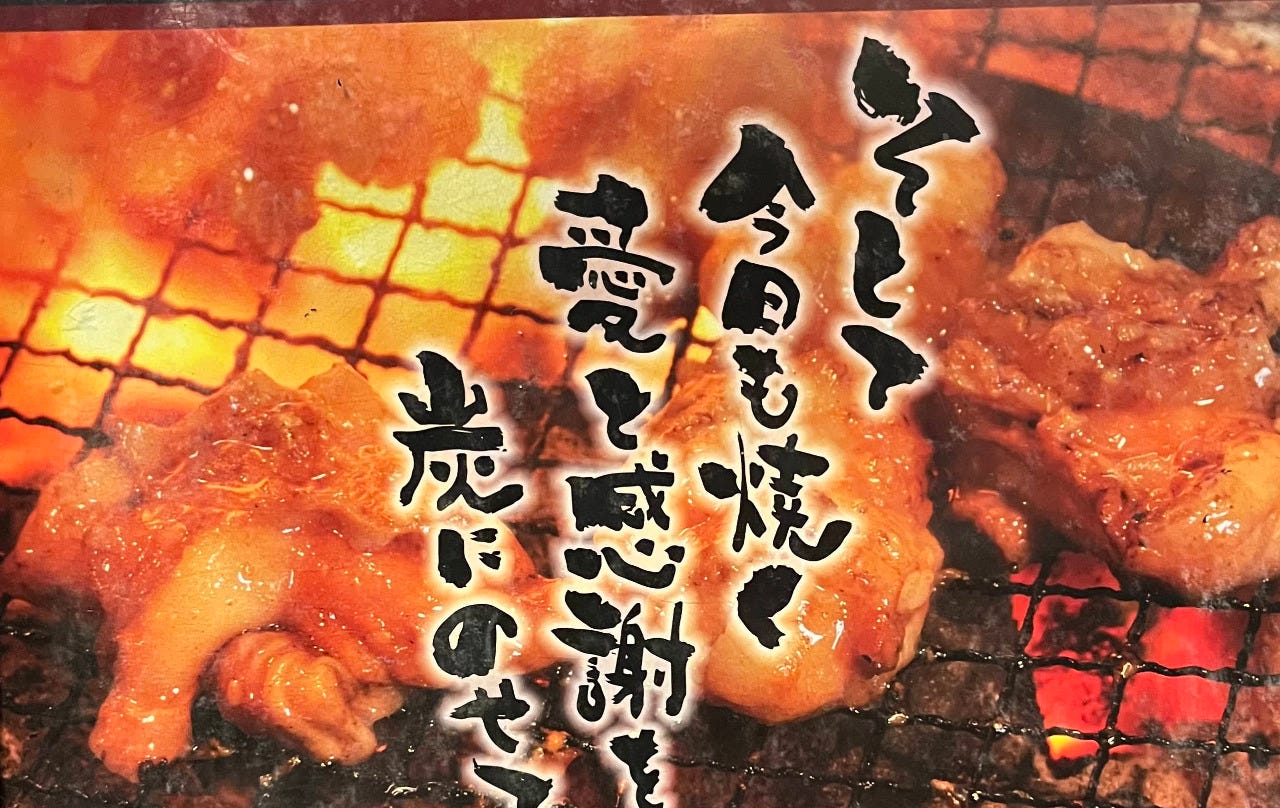 そして
今日も焼く
愛と感謝を
炭にのせて